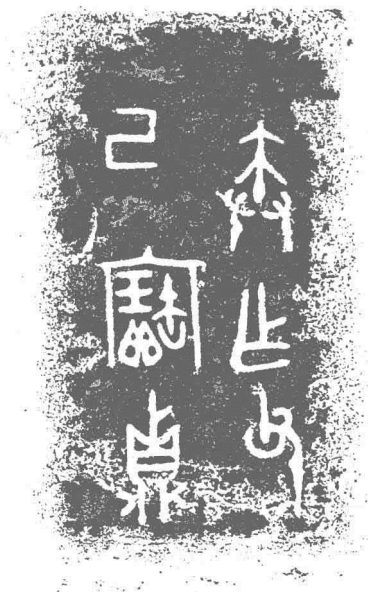 乍父
己寶鼎